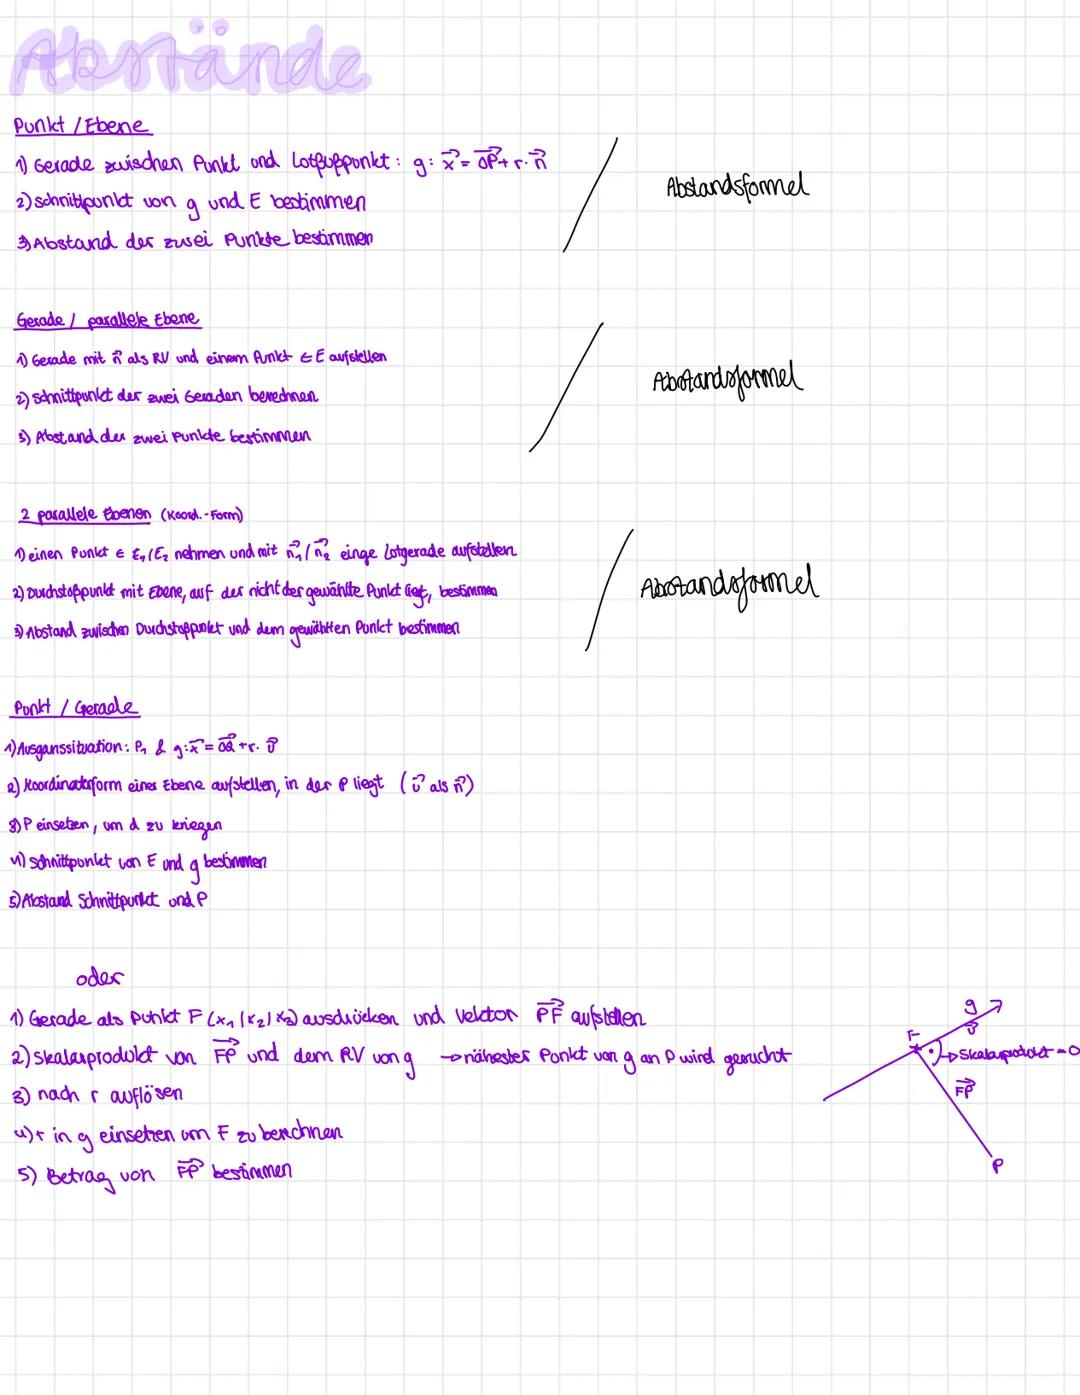 Abstände
Punkt / Ebene
1) Gerade zwischen Punkt und Lotfußpunkt: g: x⃗ = OP⃗ + r · n⃗
2) Schnittpunkt von g und E bestimmen
3) Abstand der zwei Punkte bestimmen
Abstandsformel
Gerade / parallele Ebene
1) Gerade mit n⃗ als RV und einem Punkt ∈ E aufstellen
2) Schnittpunkt der zwei Geraden berechnen
3) Abstand der zwei Punkte bestimmen
Abstandsformel
2 parallele Ebenen (Koord.-Form)
1) einen Punkt ∈ E₁/E₂ nehmen und mit n⃗₁/n⃗₂ einge Lotgerade aufstellen
2) Durchstoßpunkt mit Ebene, auf der nicht der gewählte Punkt liegt, bestimmen
3) Abstand zwischen Durchstoßpunkt und dem gewählten Punkt bestimmen
Abstandsformel
Punkt / Gerade
1) Ausganssituation: P₁ & g: x⃗ = OQ⃗ + r · v⃗
2) Koordinatenform einer Ebene aufstellen, in der P liegt (v⃗ als n⃗)
3) P einsetzen, um d zu kriegen
4) Schnittpunkt von E und g bestimmen
5) Abstand Schnittpunkt und P
oder
1) Gerade als Punkt F (x₁ | x₂ | x₃) ausdrücken und Vektor PF⃗ aufstellen
2) Skalarprodukt von FP⃗ und dem RV von g → nähester Punkt von g an P wird gesucht
3) nach r auflösen
4) r in g einsetzen um F zu berechnen
5) Betrag von FP⃗ bestimmen
g
v⃗
F
→ Skalarprodukt = 0
FP⃗
P